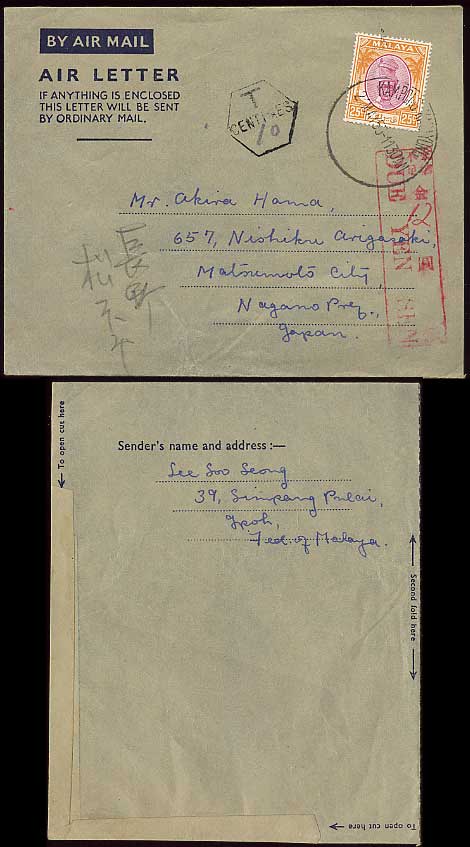 BY AIR MAIL
AIR LETTER
IF ANYTHING IS ENCLOSED
THIS LETTER WILL BE SENT
BY ORDINARY MAIL.
T
CENTIMES
10
MALAYA
25c 25c
Mr. Akira Hama,
657, Nishiku Arigasaki,
Matsumoto City,
Nagano Pref.,
Japan.
長野
松本
金 12 円
DUE YEN SEN
To open cut here
Sender's name and address :—
Lee Soo Seong
39, Simpang Pulai,
Ipoh,
Fed. of Malaya.
Second fold here
To open cut here